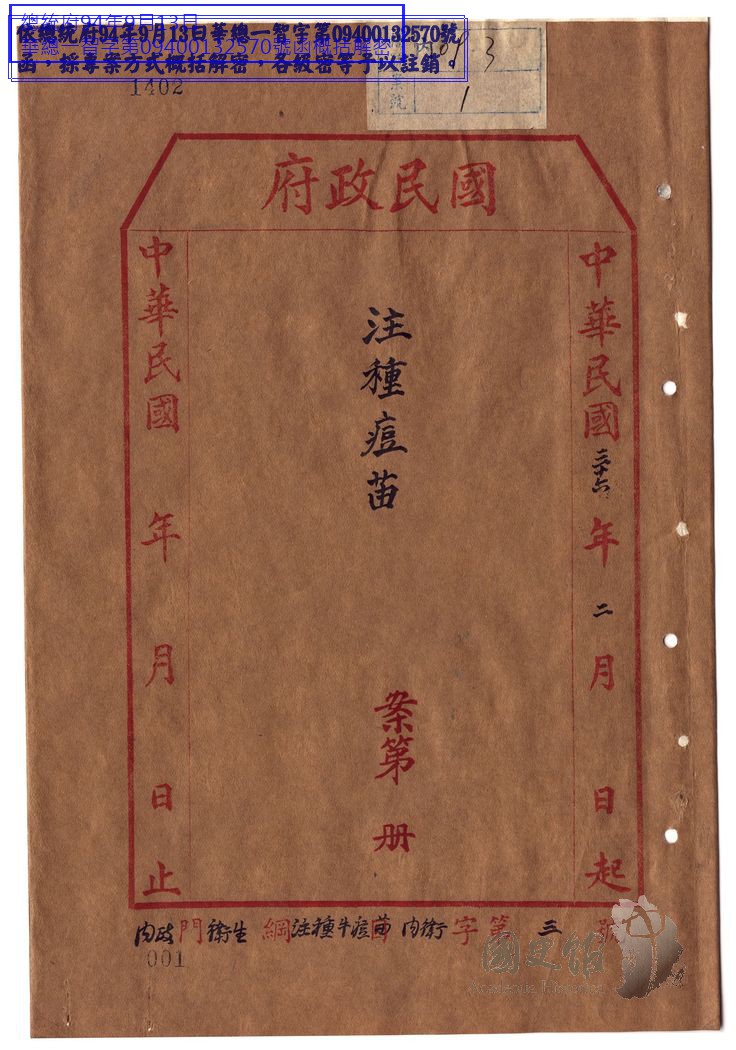 總統府94年9月13日
華總一智字第09400132570號函概括解密
依總統府94年9月13日華總一智字第09400132570號
函，採專案方式概括解密，各級密等予以註銷。
1402
內
3
號
1
國民政府
中華民國三十六年二月 日起
注種痘苗
案第 册
中華民國 年 月 日止
內政門衛生 綱注種牛痘苗目內衛字第三號
001
國史館